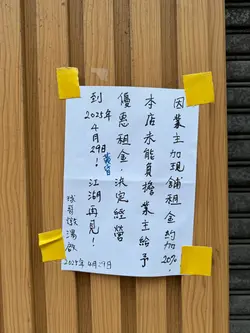 因業主加現舖租金約加20%,
本店未能負擔業主給予
優惠租金,決定經營
到2025年4月29日!江湖再見!
燉湯啟
2025年4月29日